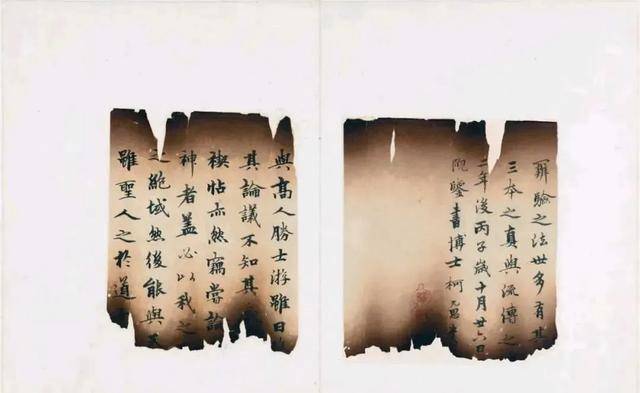 辨驗之法世多有其
三本之真與流傳之
二年後丙子歲十月廿六日
院鑒書博士柯九思
與高人勝士游雖日
其論議不知其
禊帖亦然竊嘗論
神者蓋必以我之
之絕域然後能與
雖聖人之於道